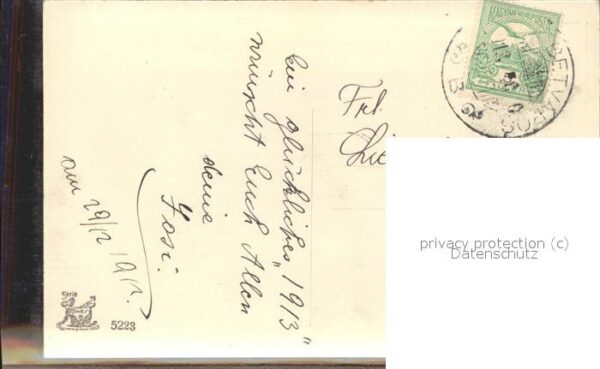 Ein glückliches „1913"
wünscht Euch Allen
deine
Josi.
am 29/12 1912.
Frl.
5223
MAGYAR KIR. POSTA
privacy protection (c)
Datenschutz